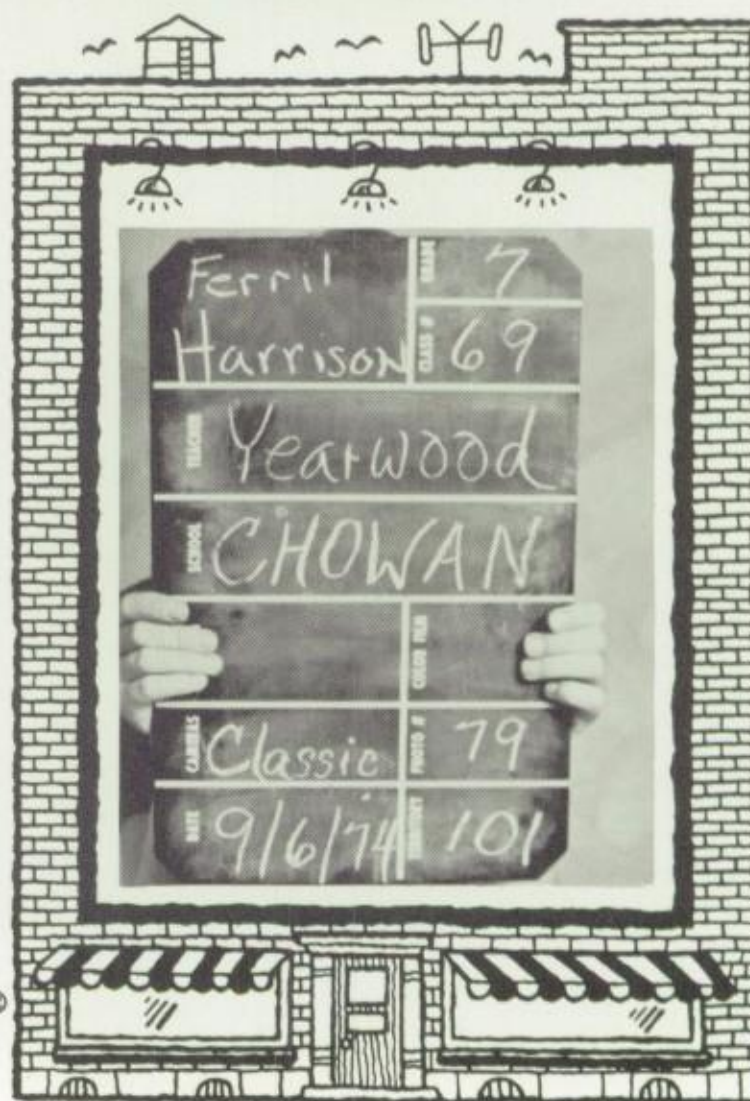 Ferril
Harrison
GRADE 7
CLASS # 69
TEACHER Yearwood
SCHOOL CHOWAN
COLOR FILM
Classic
PHOTO # 79
DATE 9/6/74
101